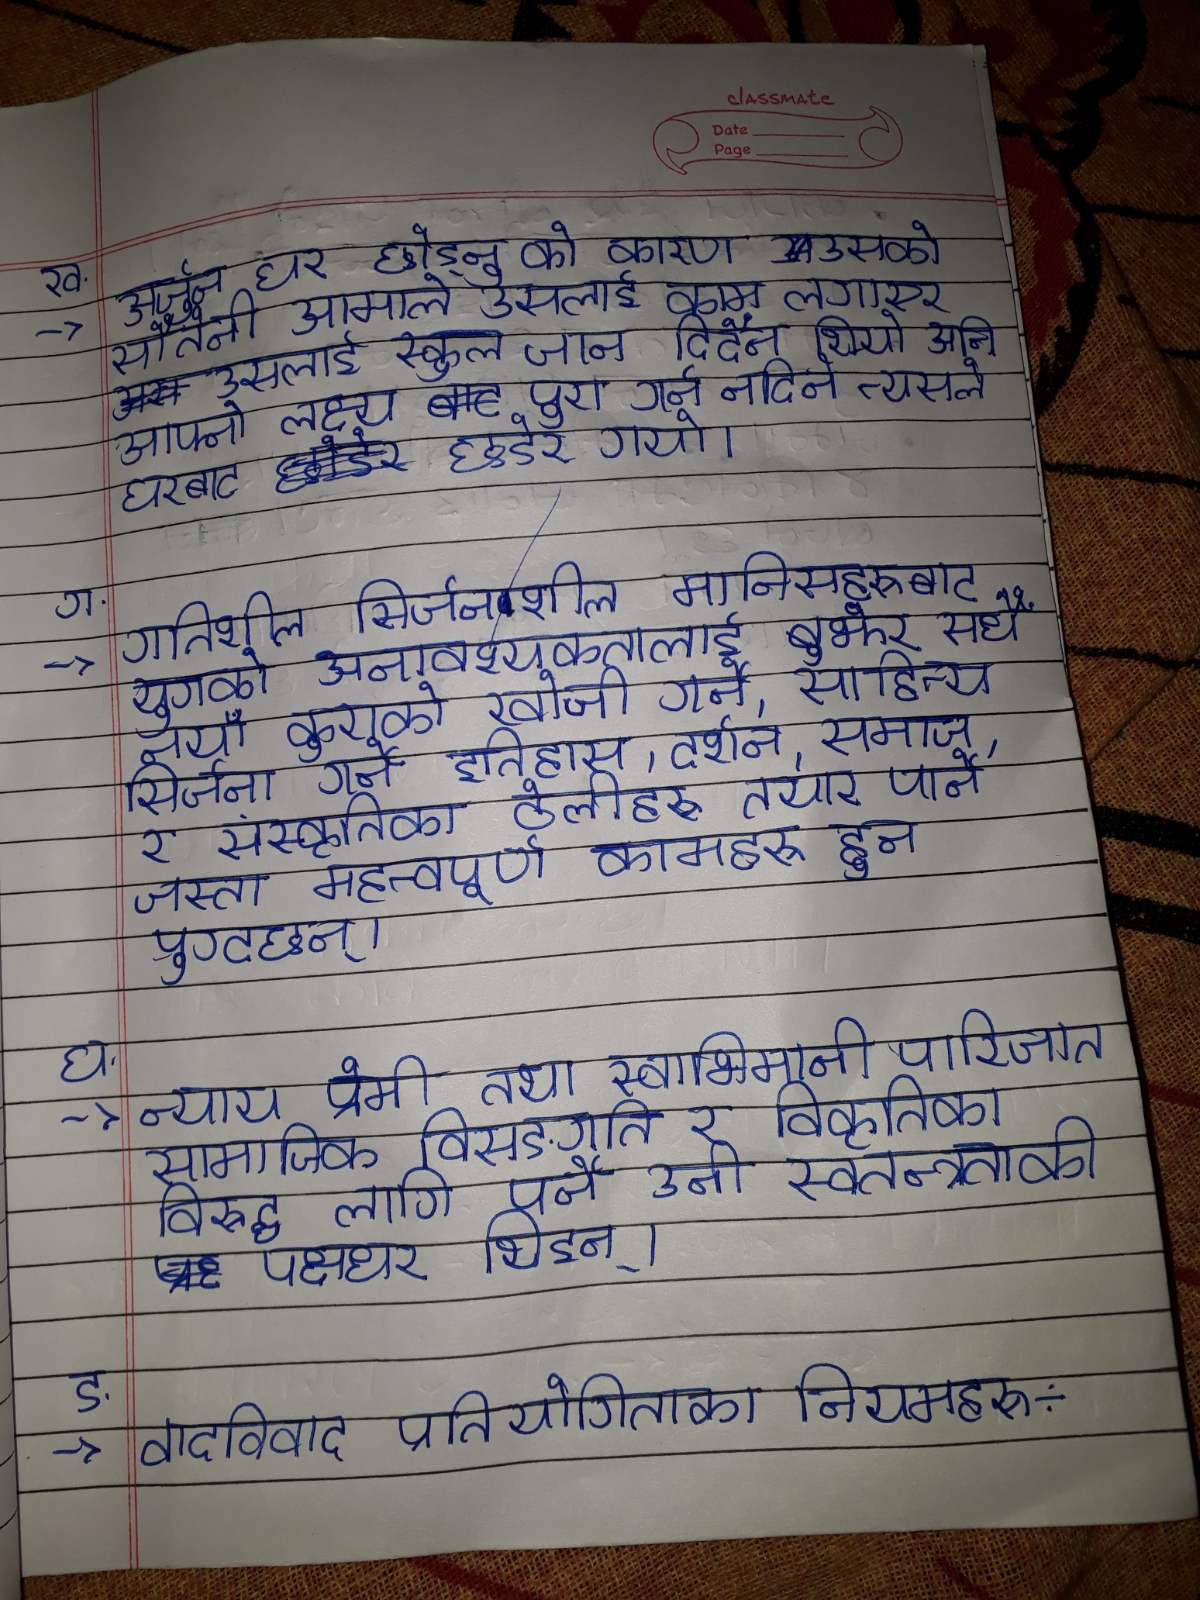 classmate
Date
Page
ख.
→ अर्जुन घर छोड्नु को कारण उसको
सौतेनी आमाले उसलाई काम लगाएर
उसलाई स्कुल जान दिदैन थियो अनि
आफ्नो लक्ष्य पुरा गर्न नदिने त्यसले
घरबाट छडेर गयो।
ग.
→ गतिशील सिर्जनाशील मानिसहरुबाट
युगको अनावश्यकतालाई बुझेर सधैँ
नयाँ कुराको खोजी गर्ने, साहित्य
सिर्जना गर्ने इतिहास, दर्शन, समाज,
र संस्कृतिका ठेलीहरु तयार पार्ने
जस्ता महत्त्वपूर्ण कामहरू हुन
पुग्दछन्।
घ.
→ न्याय प्रेमी तथा स्वाभिमानी पारिजात
सामाजिक विसङ्गति र विकृतिका
विरुद्ध लागि पर्ने उनी स्वतन्त्रताकी
पक्षधर थिइन्।
ङ.
→ वादविवाद प्रतियोगिताका नियमहरू÷